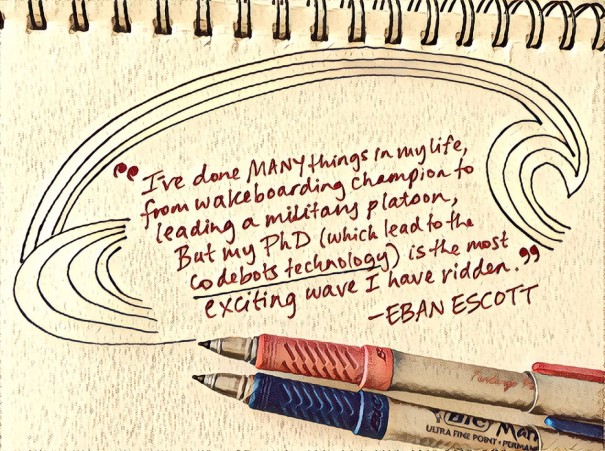 "I've done MANY things in my life,
from wakeboarding champion to
leading a military platoon,
But my PhD (which lead to the
codebots technology) is the most
exciting wave I have ridden."
-EBAN ESCOTT
BIC
ULTRA FINE POINT • PERMAN